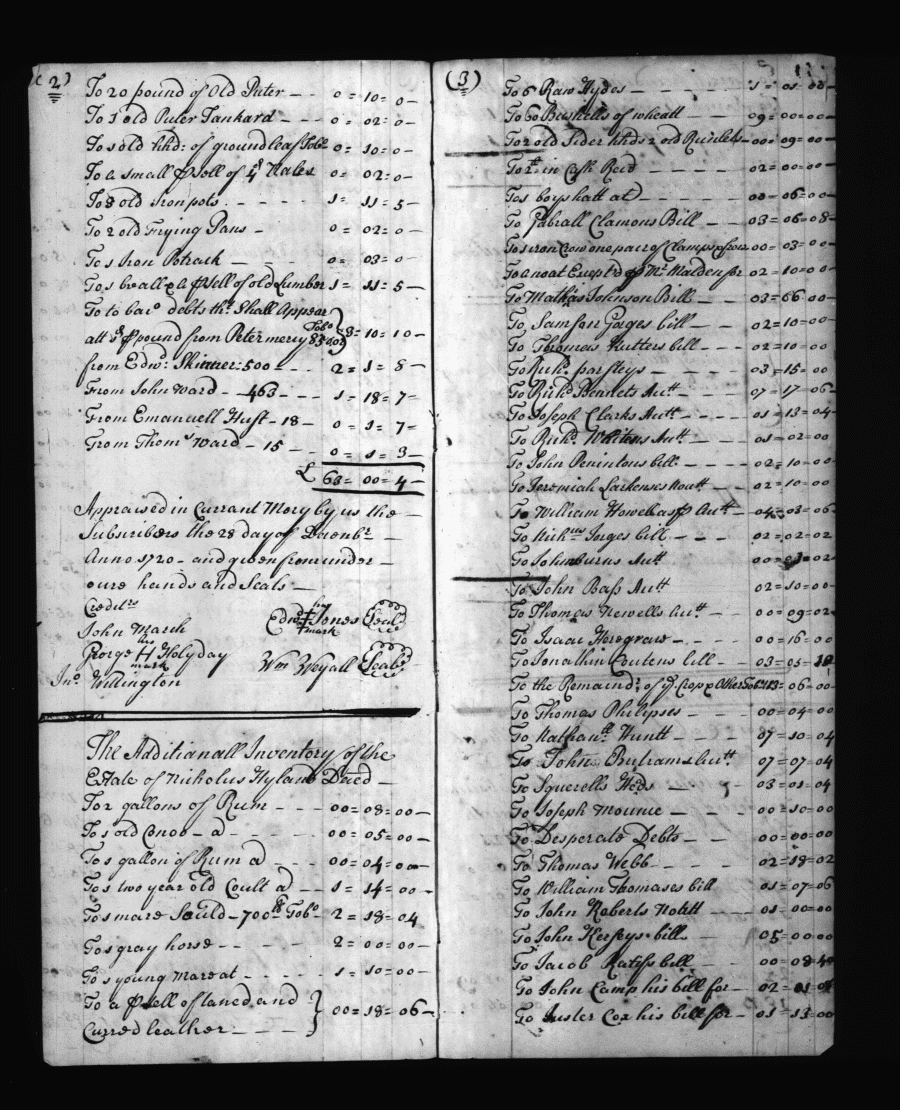 (2)
To 20 pound of Old Puter — — 0 = 10 = 0 —
To 1 old Puter Tankard — — — 0 = 02 = 0 —
To 1 old hhd: of ground leaf Tobo 0 = 10 = 0 —
To a small psell of Nales 0 = 02 = 0 —
To 8 old Iron pots . — — — — 1 = 11 = 5 —
To 2 old Frying Pans — 0 = 02 = 0 —
To 1 Iron Potrack — — — 0 = 03 = 0 —
To psell of old Lumber 1 = 11 = 5 —
To to bao debts tht Shall Appear
att pound from Peter mercy Tobo 8 = 10 = 10 —
from Edwd: Skinner: 500 — — 2 = 1 = 8 —
From John Ward — 463 — — — 1 = 18 = 7 —
From Emanuell Hust — 18 — 0 = 1 = 7 —
From Thoms Ward — 15 0 = 1 = 3 —
£ 63 = 00 = 4 —
Appraised in Currant Mony by us the —
Subscribers the 28 day of Decenbr —
Anno 1720 — and given from under —
oure hands and Seals —
Creditrs
John March
his
George H Holyday
mark
Jno Willington
his
Edwd Jones Seal
mark
Wm Weyall Seal
The Additianall Inventory of the
Estate of Nicholus Hyland Deced —
To 2 gallons of Rum — — — 00 = 08 = 00 —
To 1 old Conoo — a — — — — 00 = 05 = 00 —
To 1 gallon of Rum a — — — 00 = 04 = 00 —
To 1 two year old Coult a — — 1 = 14 = 00 —
To 1 mare Sould — 700 Tobo — 2 = 18 = 04
To 1 gray horse — — — 2 = 00 = 00 —
To 1 young mare at — — — — 1 = 10 = 00 —
To a psell of taned and
Curred leather — — — — 00 = 18 = 06 —
(3)
To 6 Raw Hydes — — — — 1 = 01 = 00 —
To 60 Bushells of wheatt — — 09 = 00 = 00 —
To 2 old Sider hhds 2 old Runlets — 00 = 09 = 00 —
To in Cash Recd — — 02 = 00 = 00 —
To 1 boys hatt at — — — 00 = 06 = 00 —
To Gabrall Clamons Bill — — 03 = 06 = 08 —
To 1 iron Crow one pair of Clamps 00 = 03 = 00 —
To a noat Mr Malden for 02 = 10 = 00 —
To Mathias Johnson Bill — — 03 = 66 = 00 —
To Samson Gorges bill — — 02 = 10 = 00 —
To Thomas Hutters bill — — 02 = 10 = 00
To Richd. parsleys — — — — 03 = 15 = 00
To Richd Bennets Autt — — 07 = 17 = 06
To Joseph Clarks Autt — — — 01 = 13 = 04
To Richd Whitons Autt — — — 01 = 02 = 00
To John Penintons bill — — — 02 = 10 = 00
To Jeremiah Larkenses Noutt — — 02 = 10 = 00
To William Autt — 04 = 03 = 06
To Nichus Jorges bill — — 02 = 02 = 02
To John burns Autt 02
To John Bass Autt 02 = 10 = 00
To Thomas Newells Autt — — 00 = 09 = 02
To Isaac Heregraw — — — 00 = 16 = 00
To Jonathin Coutens bill — — 03 = 05 =
To the Remaindr of ye Crop Other Tobo 13 = 06 = 00
To Thomas Philipses — — 00 = 04 = 00
To Nathanll Huntt — — 07 = 10 = 04
To John Butrams Autt 07 = 07 = 04
To Squerells Hods — — 03 = 01 = 04
To Joseph Mounce — — — — 00 = 10 = 00
To Desperate Debts — — — 00 = 00 = 00
To Thomas Webb — — — — 02 = 18 = 02
To William Thomases bill 01 = 07 = 06
To John Roberts Notitt — — — 01 = 00 = 00
To John Kerseys bill — — — 05 = 00 = 00
To Jacob Ratiss bill — — — 00 = 08 =
To John Camp his bill for — 02 = 01 =
To Juster Cox his bill for — — 01 = 13 = 00